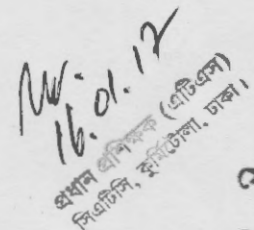 16.01.17
প্রধান প্রশিক্ষক (এটিএস)
সিএটিসি, কুর্মিটোলা, ঢাকা।